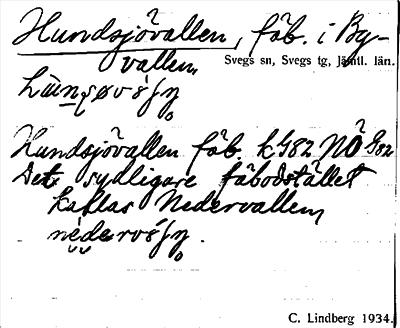 Hundsjövallen, fäb. i By-
vallen,
Svegs sn, Svegs tg, Jämtl. län.
Hundsjövallen fäb. k G82 NÖ G82
Det sydligare fäbodstället
kallas Nedervallen,
C. Lindberg 1934.